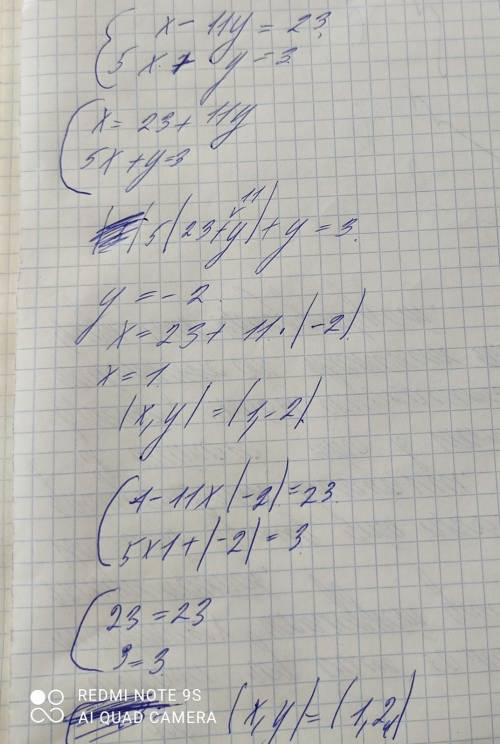 { x - 11y = 23
5x + y = 3
{ x = 23 + 11y
5x + y = 3
5(23 + 11y) + y = 3
y = -2
x = 23 + 11 · (-2)
x = 1
(x, y) = (1, -2)
{ 1 - 11x(-2) = 23
5x1 + (-2) = 3
{ 23 = 23
3 = 3
(x, y) = (1, 2)
REDMI NOTE 9S
AI QUAD CAMERA